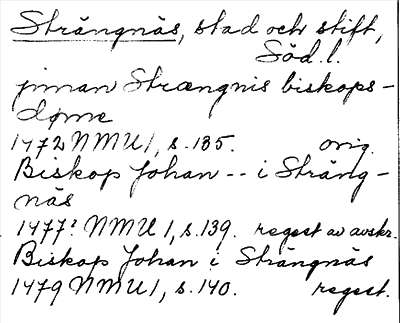 Strängnäs, stad och stift,
Söd. l.
jnnan Strængnis biskops-
døme
1472 NMU 1, s. 135. orig.
Biskop Johan -- i Sträng-
näs
1477? NMU 1, s. 139. regest av avskr.
Biskop Johan i Strängnäs
1479 NMU 1, s. 140. regest.